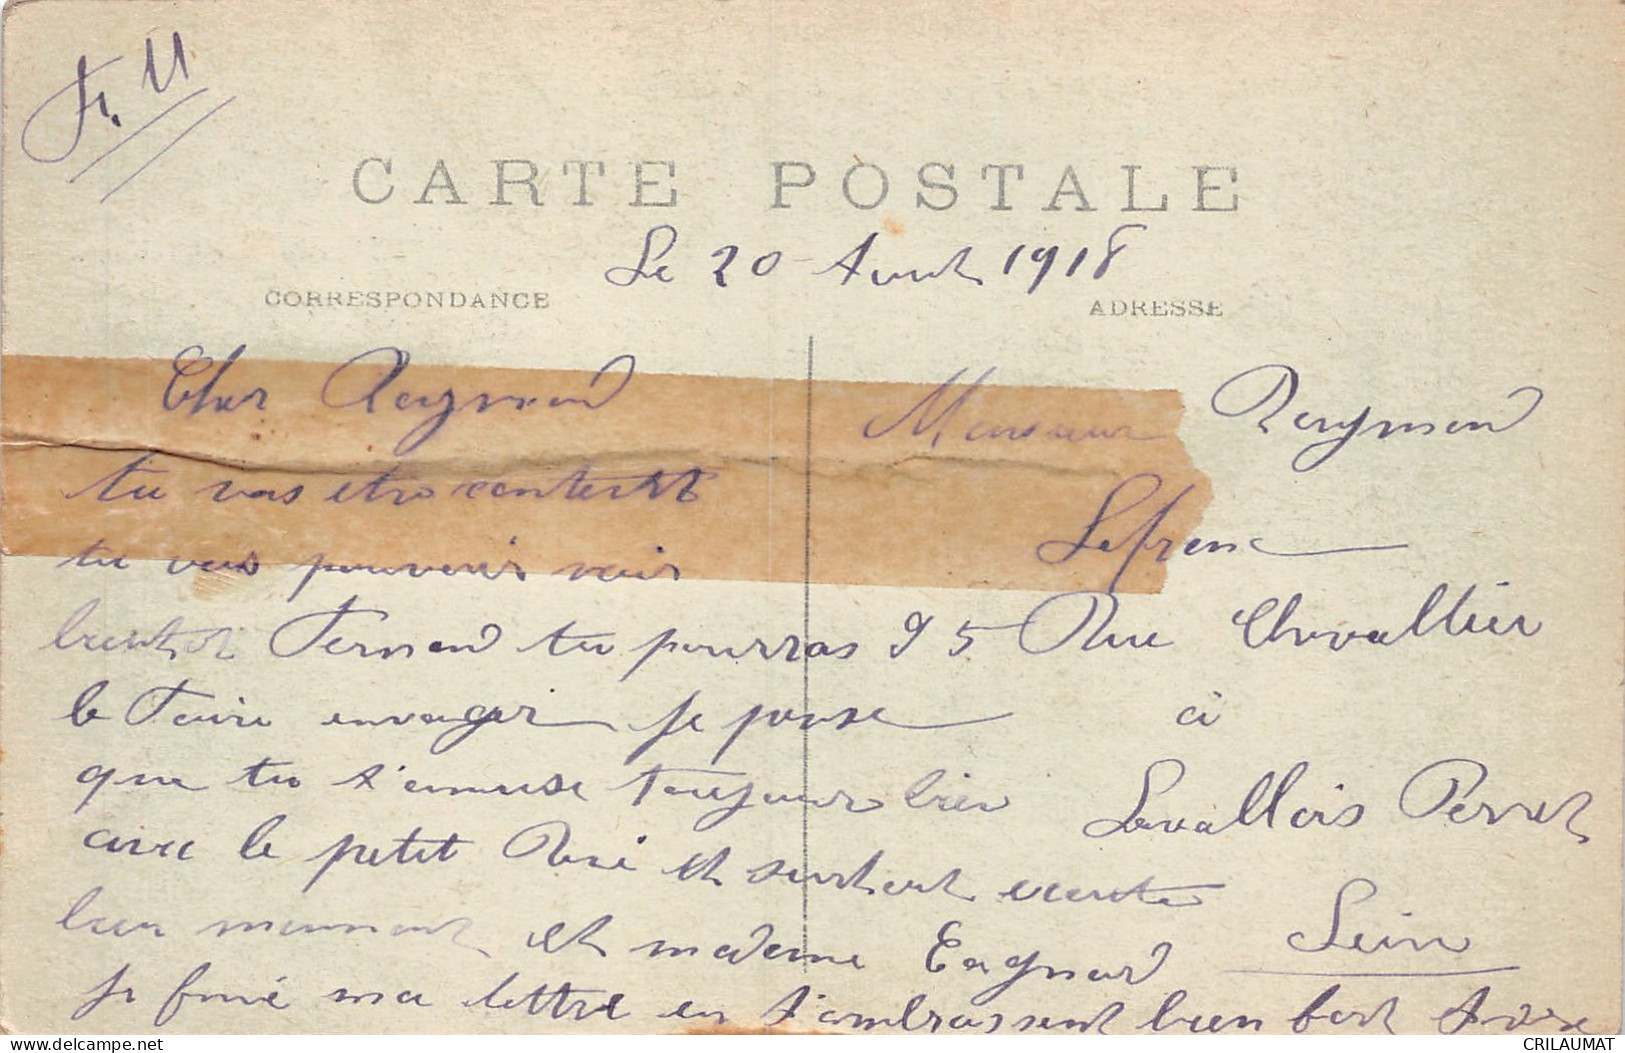 Fr. 11
CARTE POSTALE
Le 20 Aout 1918
CORRESPONDANCE
ADRESSE
Cher Raymond
tu vas etre content
tu vas pouvoir voir
bientot Fernand tu pourras
le faire enrager je pense
que tu t'amuse toujour bien
avec le petit René et surtout ecoute
bien maman et madame Eagnard
je finie ma lettre en t'embrassent bien fort
Monsieur Raymond
Lefrenc
95 Rue Chevallier
à
Levallois Perret
Seine
delcampe.net
CRILAUMAT